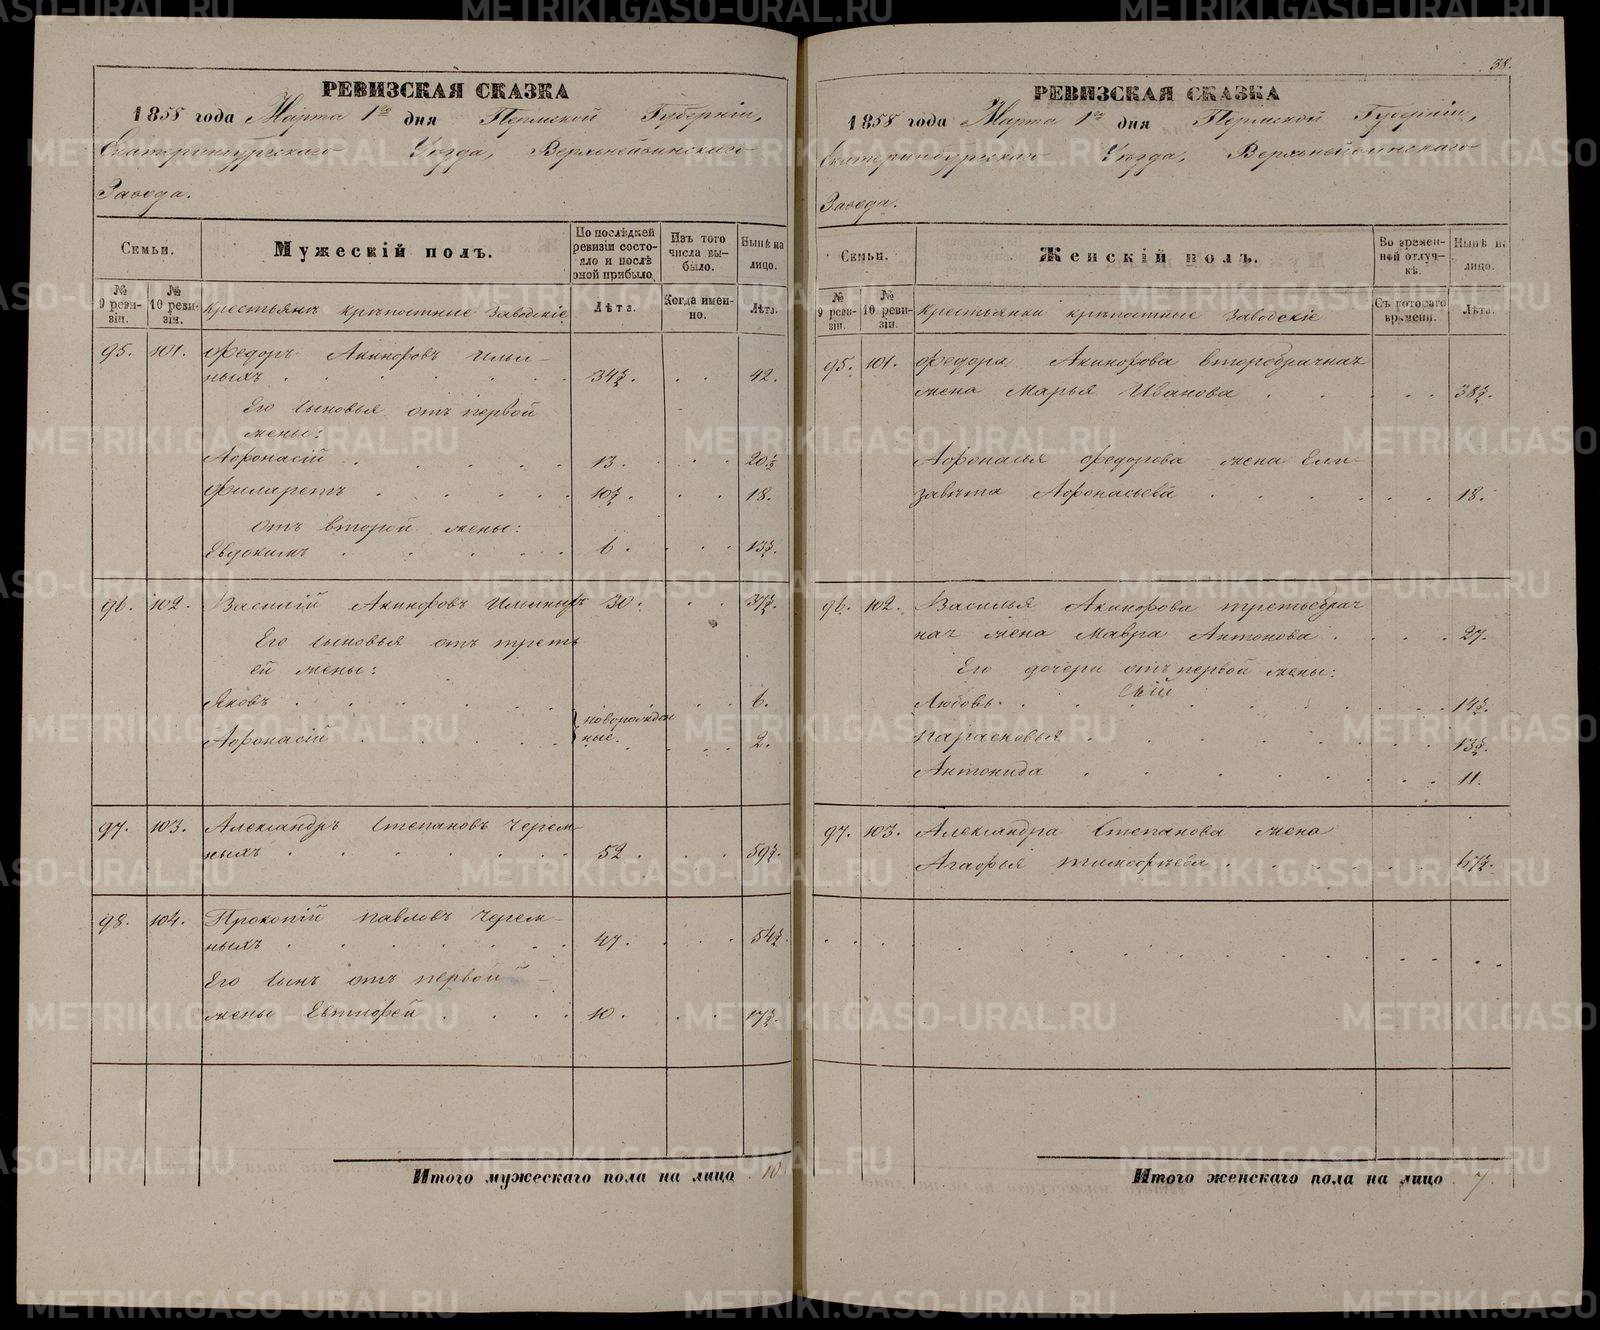 РЕВИЗСКАЯ СКАЗКА
1858 года Марта 1го дня Пермской Губернiи,
Екатеринбургскаго Уѣзда, Верхнейвинскаго
Завода.
Семьи.
Мужескiй полъ.
По послѣдней ревизiи состояло и послѣ оной прибыло.
Изъ того числа выбыло.
Нынѣ на лицо.
№ 9 ревизiи.
№ 10 ревизiи.
Крестьянъ крѣпостные заводскiе
Лѣтъ.
Когда именно.
Лѣтъ.
95. 101. Федоръ Акинфовъ Ильи-
ныхъ 34½. 42.
Его сыновья отъ первой
жены:
Афонасiй 13. 20½
Филаретъ 10½. 18.
Отъ второй жены:
Евдокимъ 6. 13½.
96. 102. Василiй Акинфовъ Ильиныхъ 30. 37½.
Его сыновья отъ треть
ей жены:
Яковъ 6.
новорожден
ные.
Афонасiй 2.
97. 103. Александръ Степановъ Черем-
ныхъ 52. 59½.
98. 104. Прокопiй Павловъ Черем-
ныхъ 47. 54½.
Его сынъ отъ первой
жены Евтифей 10. 17½.
Итого мужескаго пола на лицо 10
38.
РЕВИЗСКАЯ СКАЗКА
1858 года Марта 1го дня Пермской Губернiи,
Екатеринбургскаго Уѣзда, Верхнейвинскаго
Завода.
Семьи.
Женскiй полъ.
Во временной отлучкѣ.
Нынѣ на лицо.
№ 9 ревизiи.
№ 10 ревизiи.
Крестьянки крѣпостные Заводскiе
Съ котораго времени.
Лѣтъ.
95. 101. Федора Акинфова второбрачная
жена Марья Иванова 38½.
Афонасья Федорова жена Ели-
завѣта Афонасьева 18.
96. 102. Василья Акинфова третьебрач
ная жена Мавра Антонова 27.
Его дочери отъ первой жены:
Любовь. 14½.
Парасковья 13½.
Антонида 11.
97. 103. Александра Степанова жена
Агафья Тимофѣева 67½.
Итого женскаго пола на лицо 7.
METRIKI.GASO-URAL.RU